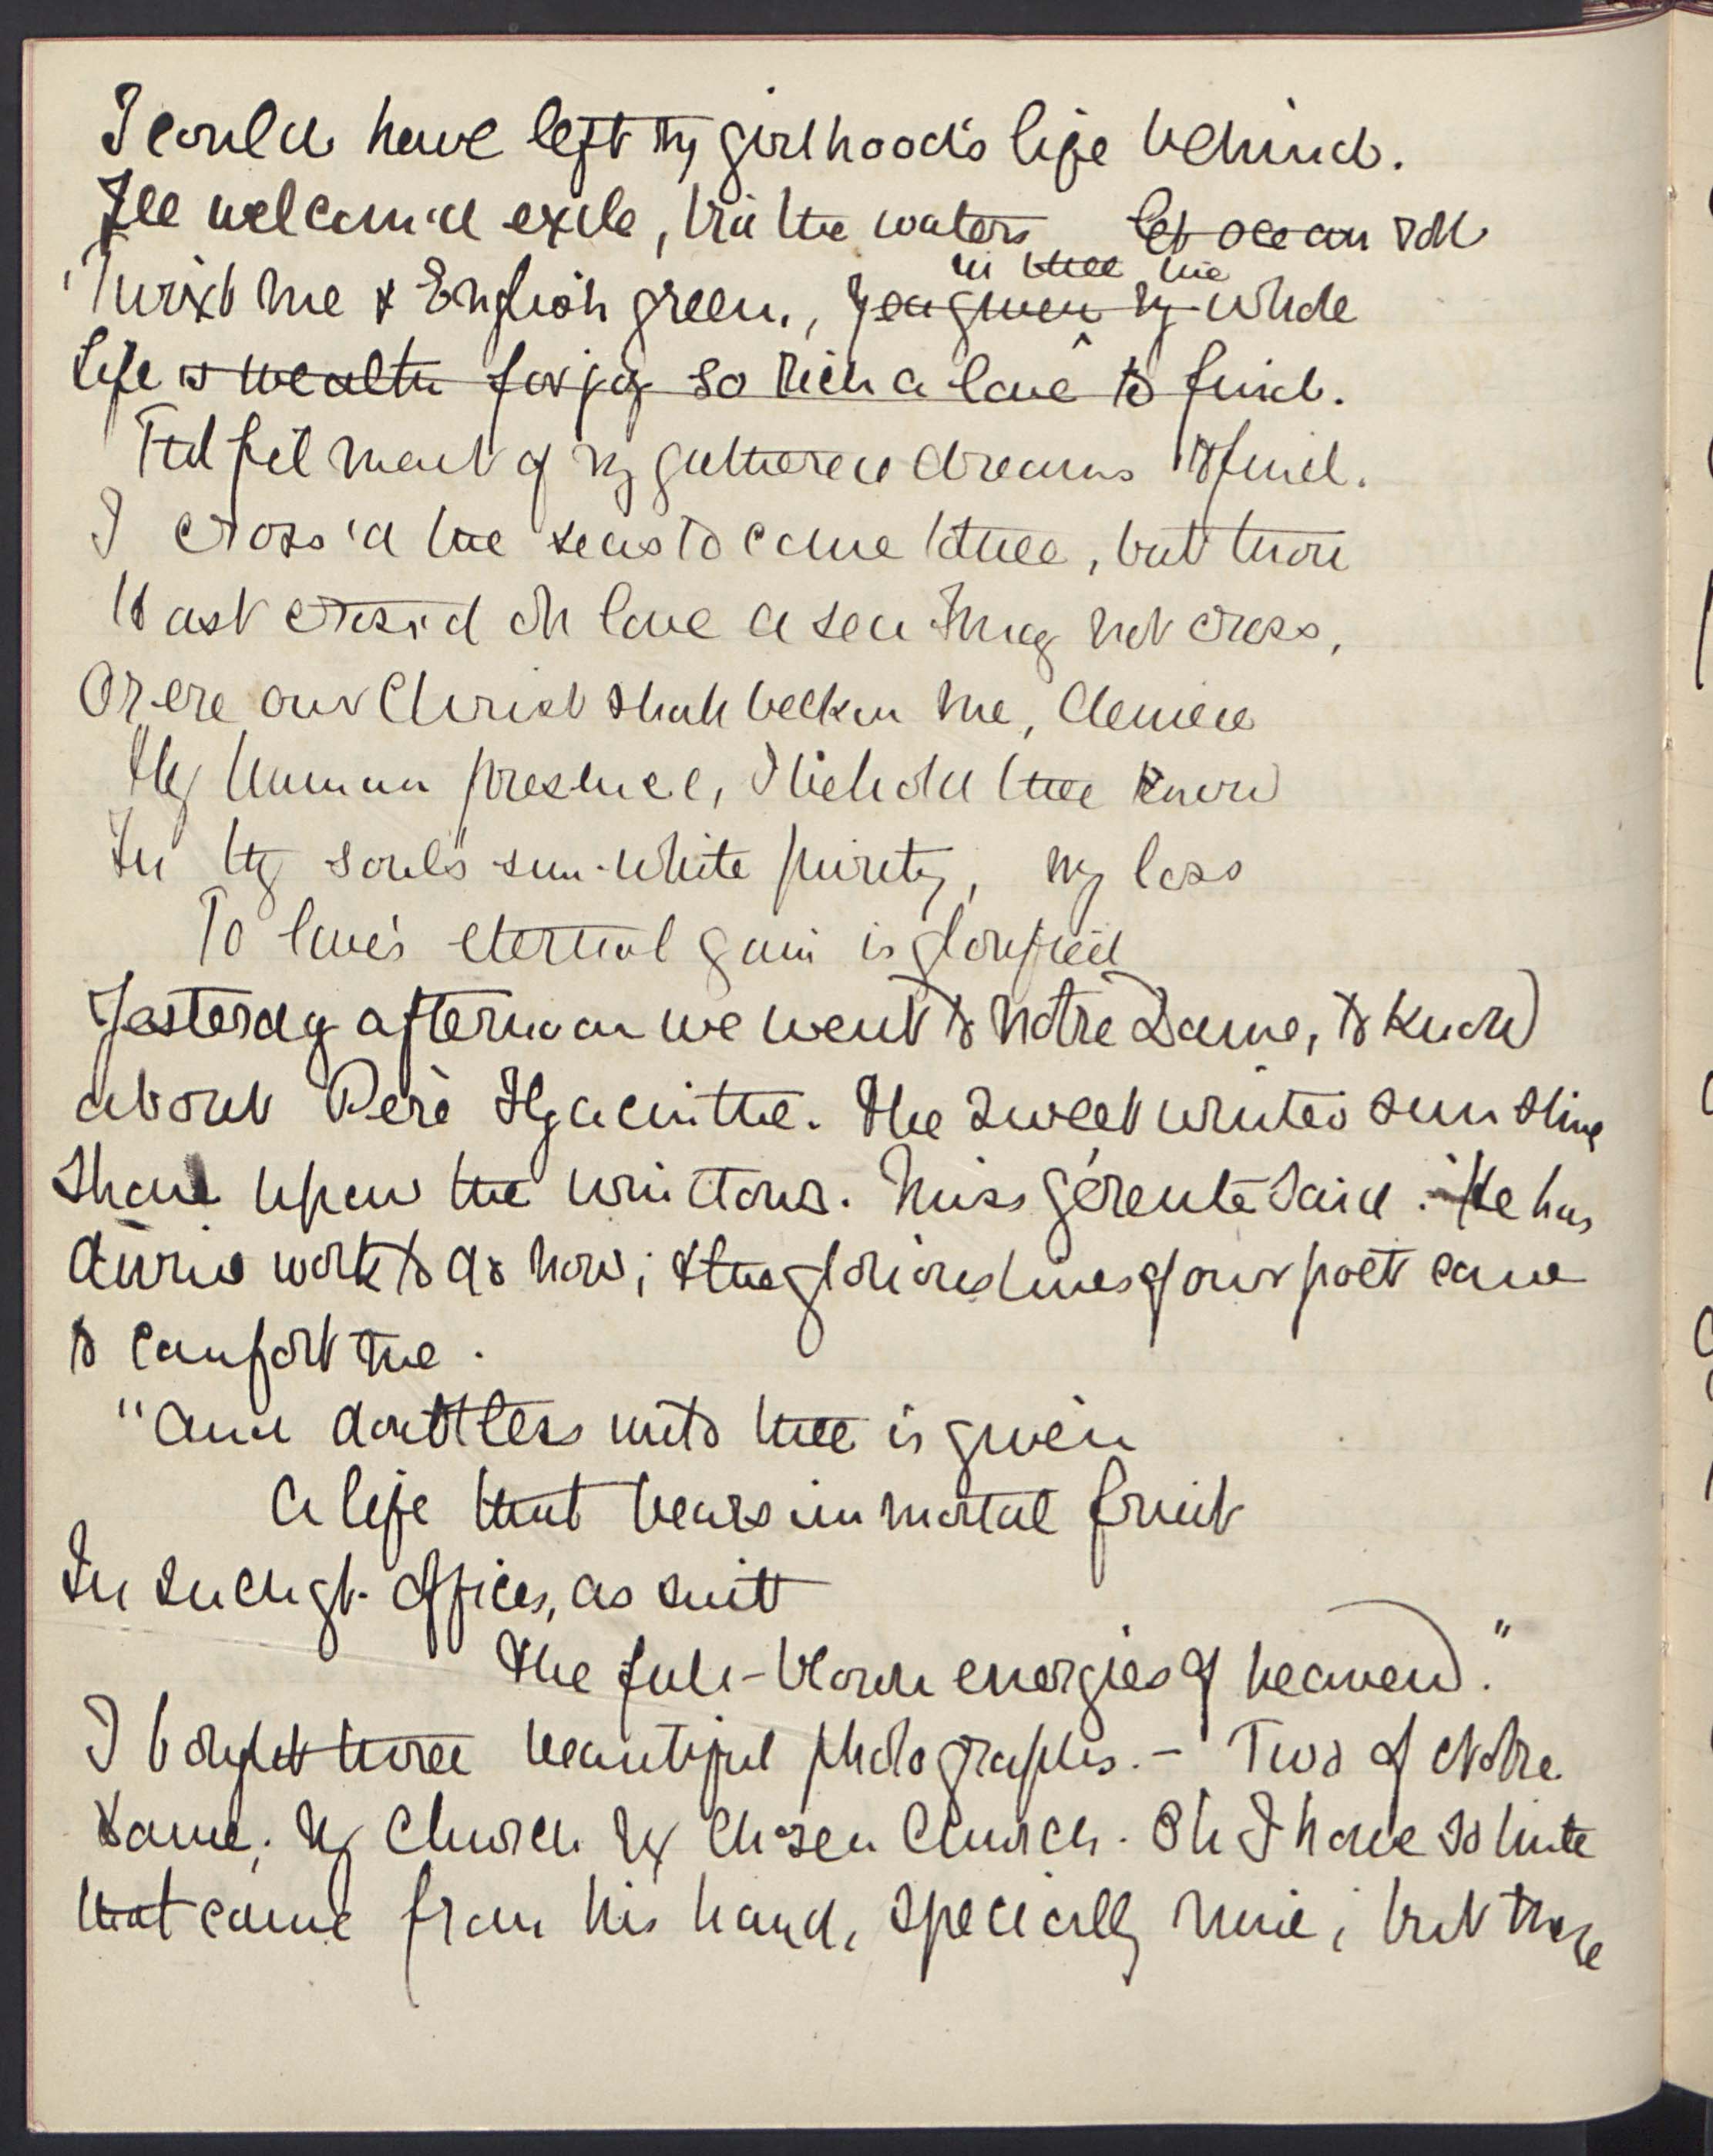 I could have left my girlhood's life behind.
I'll welcom'd exile, bid the waters let ocean roll
'Twixt me & English green, yea given my whole
in thee the
Life's wealth for joy so rich a love to find.
Fulfilment of my gathered dreams to find.
I cross'd the seas to come to thee, but thou
Hast cross'd oh love a sea I may not cross,
Or ere our Christ shall beckon me, denied
Thy human presence, I behold thee now
In thy soul's sun-white purity, my loss
To love's eternal gain is glorified
Yesterday afternoon we went to Notre Dame, to know
about Père Hyacinthe. The sweet winter sunshine
shone upon the windows. Miss Gérente said: "He has
divine work to do now; & the glorious lines of our poet came
to comfort me.
"And doubtless unto thee is given
A life that bears immortal fruit
In such gt. offices, as suit
The full-blown energies of heaven."
I bought three beautiful photographs. - Two of Notre
Dame; my Church my chosen Church. Oh I have so little
that came from his hand, specially mine; but these